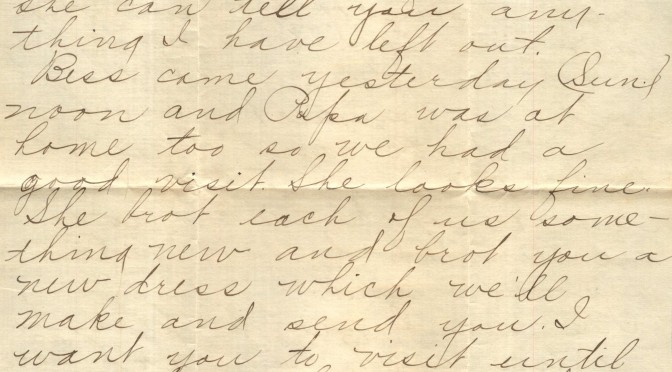 she can tell you any-
thing I have left out.
Bess came yesterday (Sun)
noon and Papa was at
home too so we had a
good visit. She looks fine.
She brot each of us some-
thing new and brot you a
new dress which we'll
make and send you. I
want you to visit until